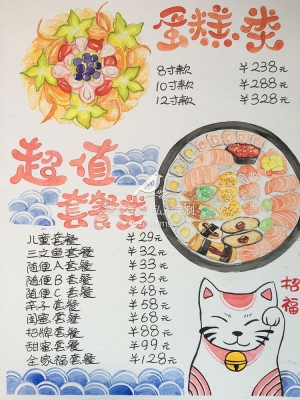 蛋糕类
8寸款 ￥238元
10寸款 ￥288元
12寸款 ￥328元
超值
套餐类
儿童套餐 ￥29元
三文鱼套餐 ￥32元
随便A套餐 ￥33元
随便B套餐 ￥35元
随便C套餐 ￥48元
亲子C套餐 ￥58元
闺蜜套餐 ￥68元
招牌套餐 ￥88元
甜蜜套餐 ￥99元
全家福套餐 ￥128元
招福